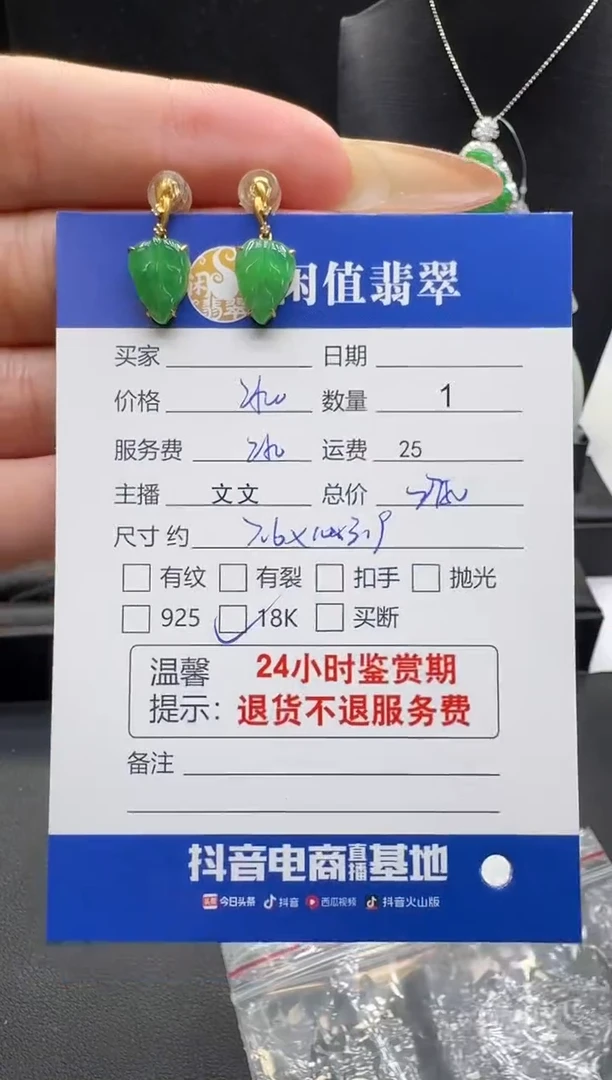 闲值翡翠
买家 日期
价格 数量 1
服务费 运费 25
主播 文文 总价
尺寸 约 7.6×10×3.9
有纹 有裂 扣手 抛光
925 18K 买断
温馨提示：
24小时鉴赏期
退货不退服务费
备注
抖音电商直播基地
头条 今日头条 抖音 西瓜视频 抖音火山版